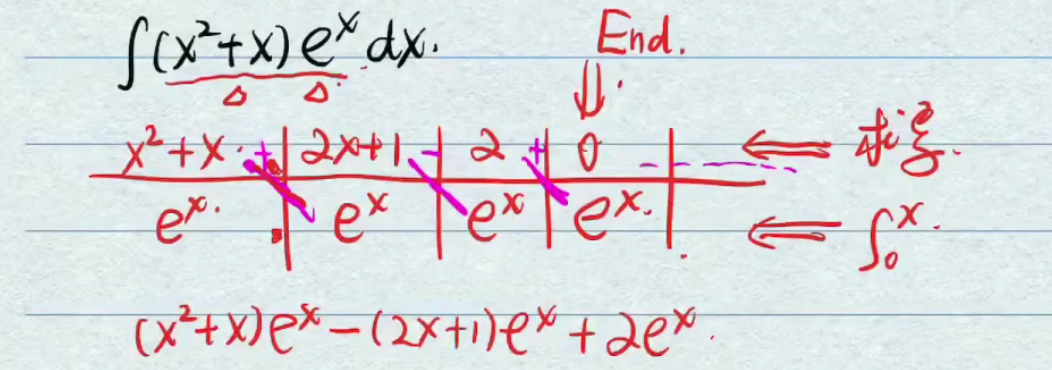 ∫(x²+x)eˣdx.
End.
⇓
x²+x + | 2x+1 - | 2 + | 0 | - ⇐ 求导.
eˣ. | eˣ | eˣ | eˣ. | ⇐ ∫₀ˣ.
(x²+x)eˣ-(2x+1)eˣ+2eˣ.